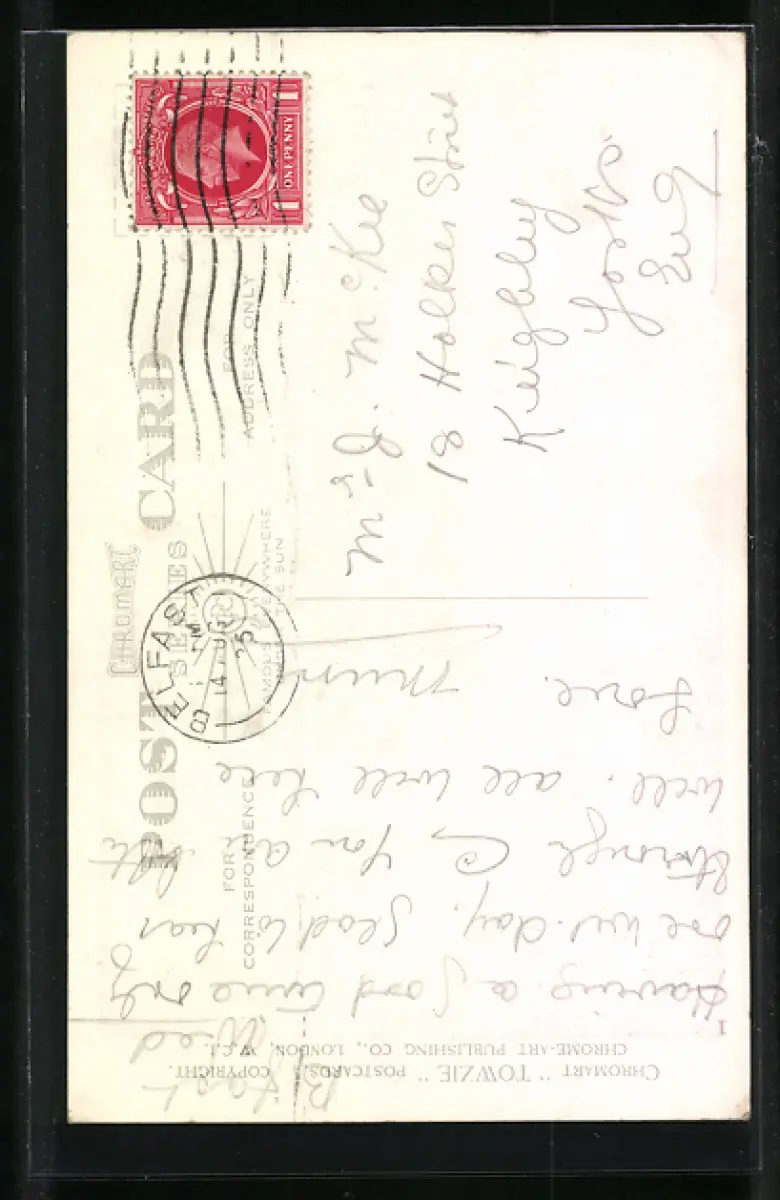 POST CARD
CHROMART
SERIES
FAMOUS EVERYWHERE
THE SUN
FOR
CORRESPONDENCE
FOR
ADDRESS ONLY
1 ONE PENNY 1
BELFAST
14 AUG
35
Mrs J. McKee
18 Holker Street
Keighley
Yorks
Eng
B/fast
Wed
Having a good time only
one wet day. Glad to hear
you are
well. all well here
Love.
CHROMART "TOWZIE" POSTCARDS, COPYRIGHT.
CHROME-ART PUBLISHING CO., LONDON, W.C.1.
1